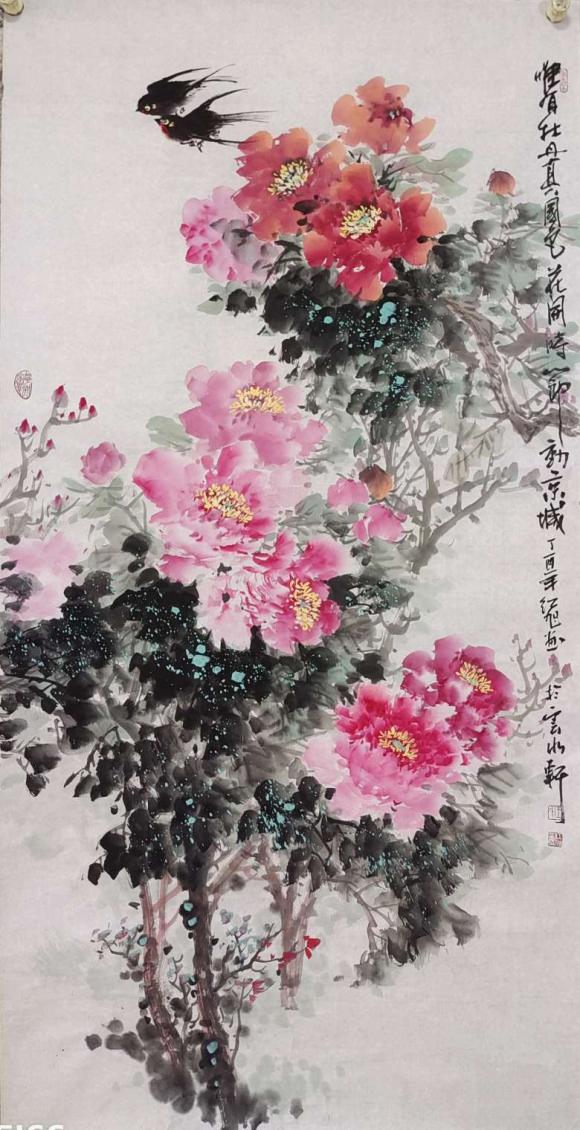 唯有牡丹真國色花開時節動京城丁酉年紅旭畫於雲水軒